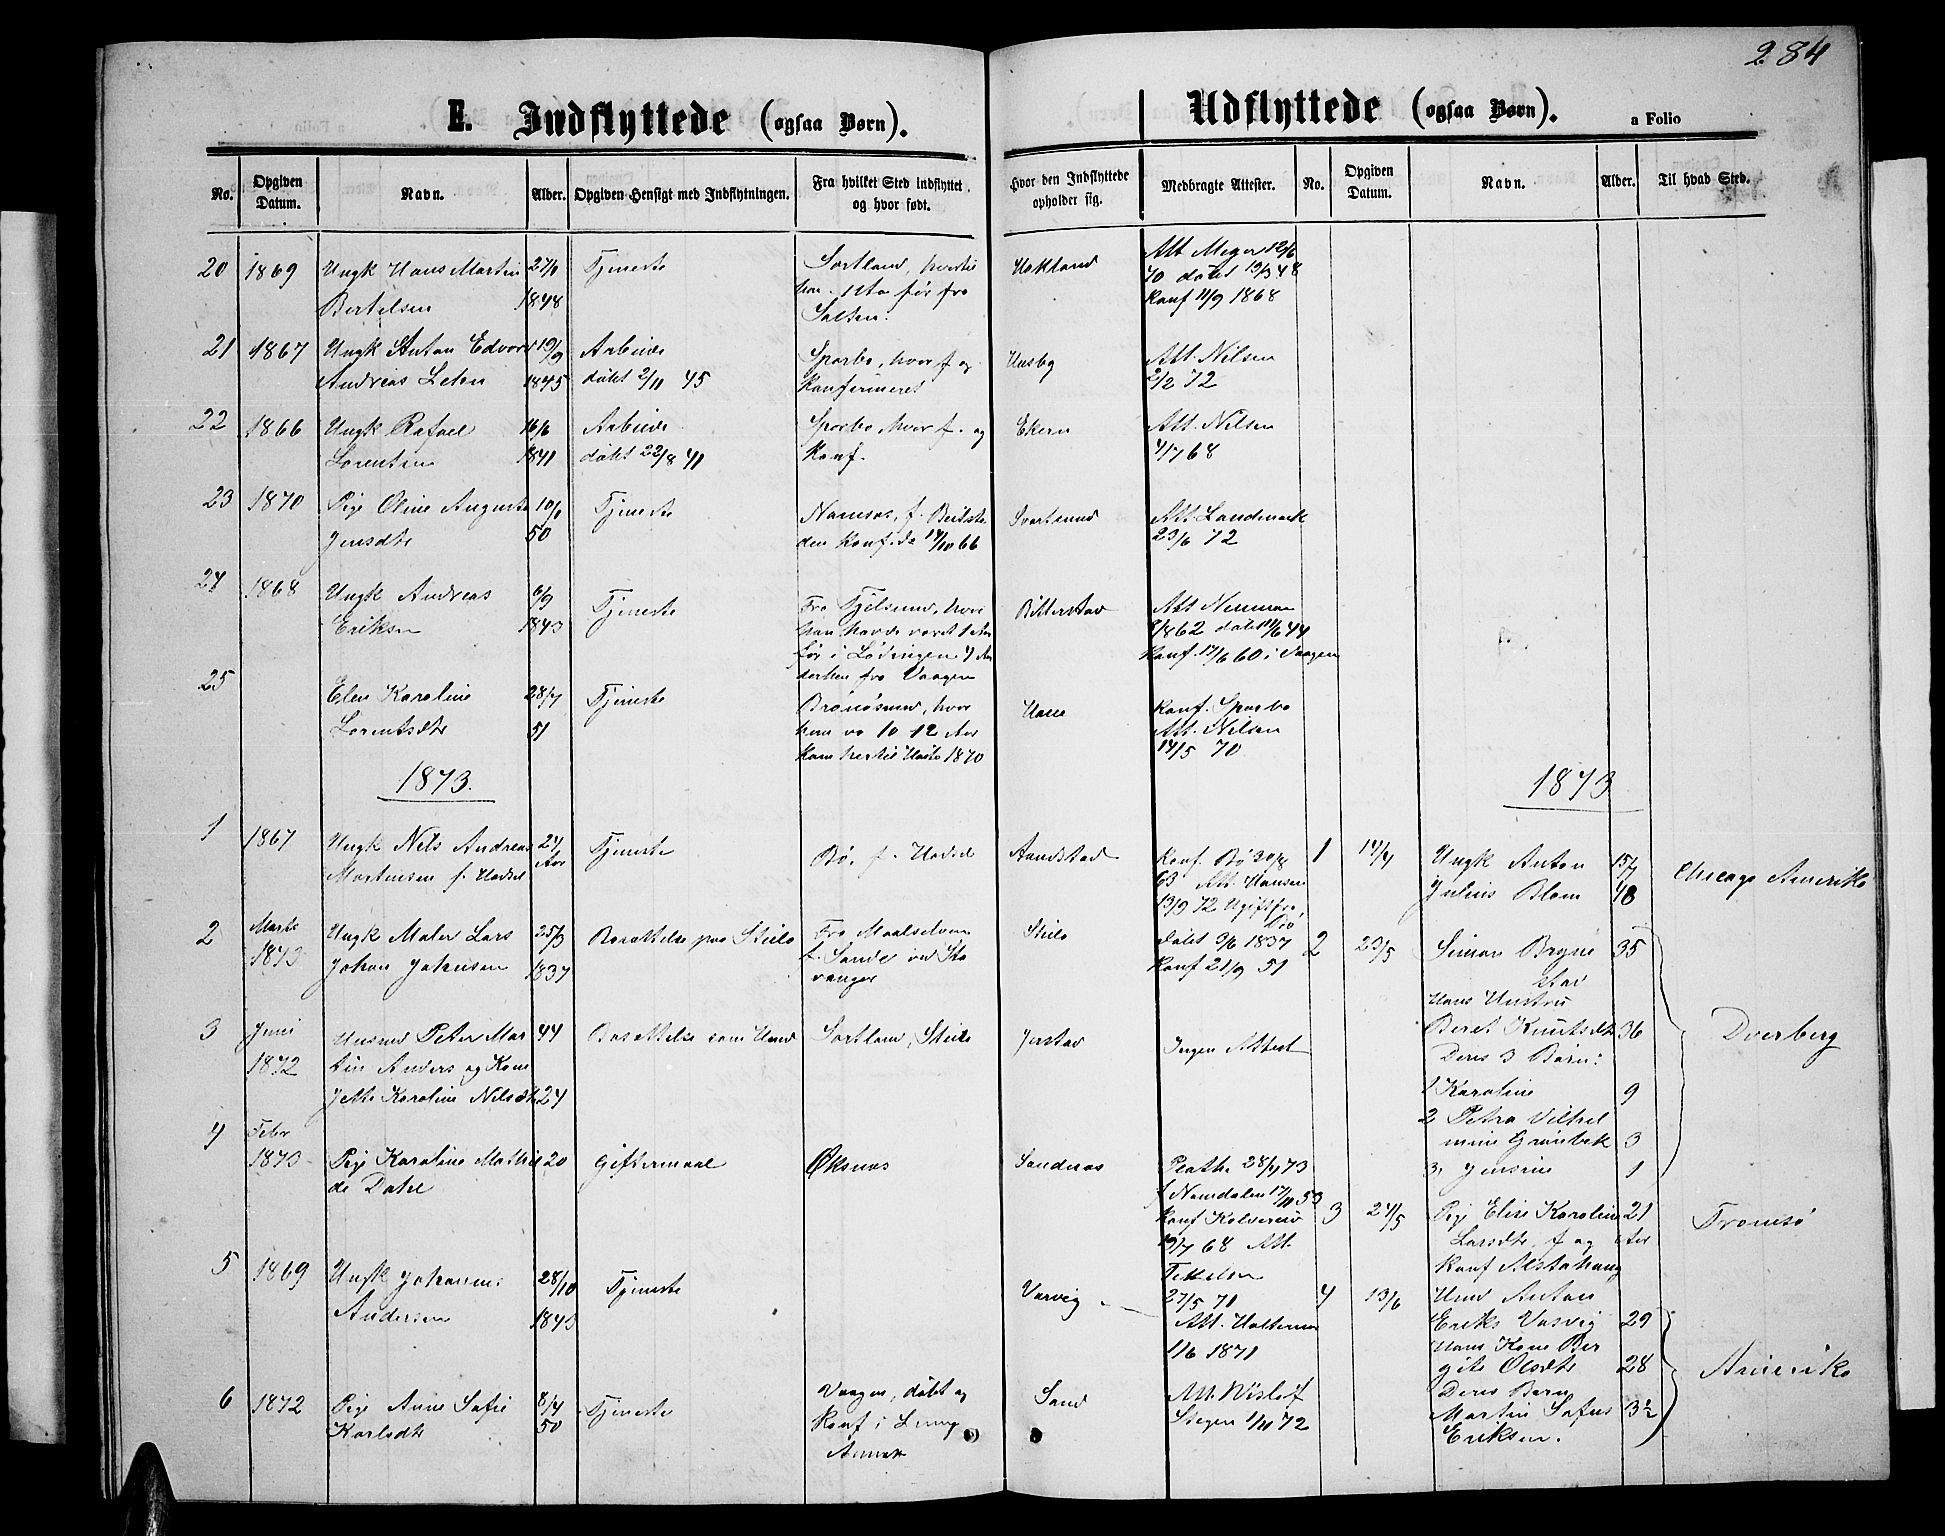 284
E. Indflyttede (ogsaa Børn).
No. Opgiven Datum. Navn. Alder. Opgiven Hensigt med Indflytningen. Fra hvilket Sted indflyttet og hvor født.
20 1869 Ungk Hans Martin 1848 Tjeneste Sortland, hertil
Bertelsen før fra
Salten.
21 1867 Ungk Anton Edvard 19/9 Arbeide Sparbo, hvor f og
Andreas Leten 1845 døbt 2/11 45 konfirmeret
22 1866 Ungk Rafael 16/6 Arbeide Sparbo, hvor f. og
Lorentsen 1841 døbt 22/8 41 Konf.
23 1870 Pige Oline Auguste Tjeneste Namsos, f. Beitsta
Jensdtr 50 den Konf. 14/10 66
24 1868 Ungk Andreas 6/9 Tjeneste Fra Tjelsund, hvor
Eriksen 1843 han havde været 1 Aar
før i Lødingen 4 Aar
dertien fra Vaagen
25 Elen Karoline 28/7 Tjeneste Brønøsund, hvor
Lorentsdtr 51 hun va 10 12 Aar
kom hertil Høste 1870
1873.
1 1867 Ungk Nils Andreas 24 Tjeneste Bø, f. Hadsel
Mortensen f. Hadsel Aar
2 Marts Ungk Maler Lars 25/3 Bosættelse paa Steilo Fra Maalselven
1873 Johan Johnsen 1837 f. Sande ved Sta
vanger
3 Juni Husmd Peter Mar 44 Bosættelse som Hmd Sortland, Steilo
1872 tin Anders og Kone
Jette Karoline Nilsdtr 24
4 Febr
1873 Pige Karoline Mathil 20 Giftermaal Øksnæs
de Dahl
5 1869 Ungk Johannes 28/10 Tjeneste
Andersen 1843
6 1872 Pige Anne Sofie 8/4 Tjeneste Vaagen, døbt og
Karlsdtr 50 Konf i
Udflyttede (ogsaa Børn). a Folio
Hvor den Indflyttede opholder sig. Medbragte Attester. No. Opgiven Datum. Navn. Alder. Til hvad Sted.
Hokland Att Meyer 12/6
70 døbt 19/3 48
Konf 11/9 1868
Husby Att. Nilsen
2/2 72
Ekern Att. Nilsen
4/7 68
Svartsund Att. Landmark
23/6 72
Bitterstad Att Neuman
8/8 62 døbt 11/6 44
Konf. 17/6 60 i Vaagen
Konf. Sparbo
Att. Nilsen
14/5 70
1873
Aandstad Konf. Bø 30/8 1 14/4 Ungk Anton 15/7 Chicago Amerika
63 Att. Hansen Julius Blom 48
13/9 72 Ugift fra
Bø
Steilo døbt 3/6 1837 2 23/5 Simon Bryne 35
Konf 21/9 51 stad
Hans Hustru
Beret Knutsdtr 36 Dverberg
Jerstad Ingen Attest Deres 3 Børn:
1 Karoline 9
2 Petra Vilhel
mine Grønbek 3
Sandnæs 28/4 73 3 Jensine 1
f Namdalen 17/11 53
Konf Kolvereid 3 24/5 Pige Elise Karoline 21 Tromsø
19/7 68 Att. Larsdtr, f og
Konf Alstahaug
Vasvig 27/5 71 4 13/6 Hmd Anton
Att. Eriks Vasvig 29
1/6 1871 Hans Kone Ber
gite Olsdtr 28 Amerika
Sand Att. Wisløf Deres Barn
Steigen 1/11 72 Martin Sofus 3½
Eriksen.